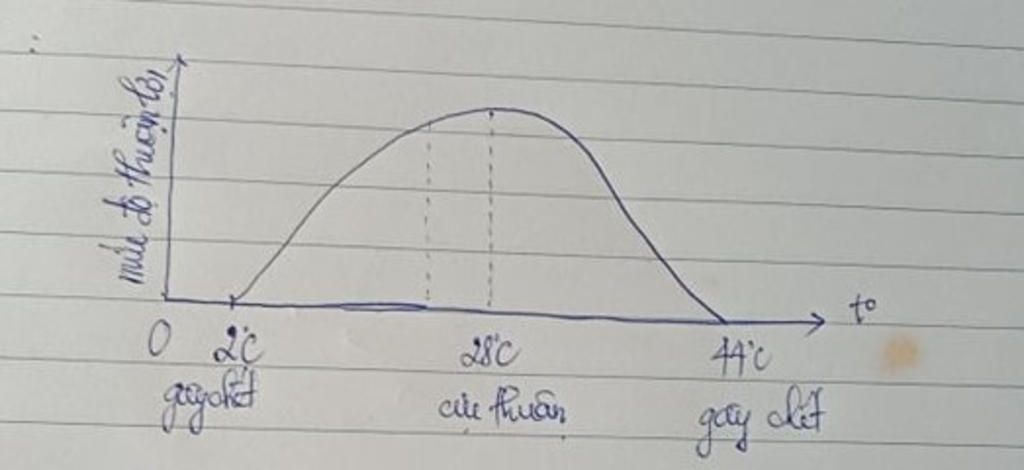 mức độ thuận lợi
t°
0 2°C 28°C 44°C
gây chết cực thuận gây chết